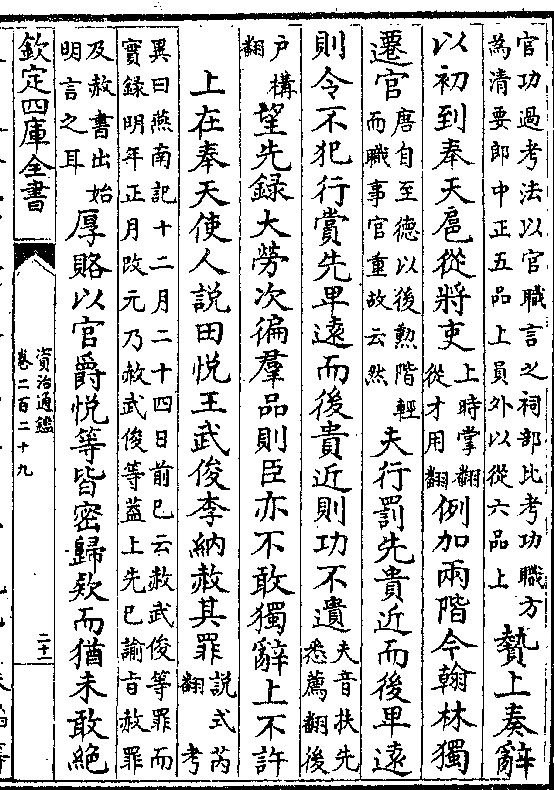 官功過考法以官職言之祠部比考功職方
為清要郎中正五品上員外以從六品上
贄上奏辭
以初到奉天扈從將吏
上時掌翻
從才用翻
例加兩階今翰林獨
遷官
唐自至德以後勲階輕
而職事官重故云然
夫行罰先貴近而後卑遠
則令不犯行賞先卑遠而後貴近則功不遺
夫音扶先
悉薦翻後
户構
翻
望先録大勞次徧羣品則臣亦不敢獨辭上不許
上在奉天使人説田悦王武俊李納赦其罪
説式芮
翻 考
異曰燕南記十二月二十四日前已云赦武俊等罪而
實録明年正月改元乃赦武俊等蓋上先已諭旨赦罪
及赦書出始
明言之耳
厚賂以官爵悦等皆密歸欵而猶未敢絶
欽定四庫全書
資治通鑑
卷二百二十九
二十一